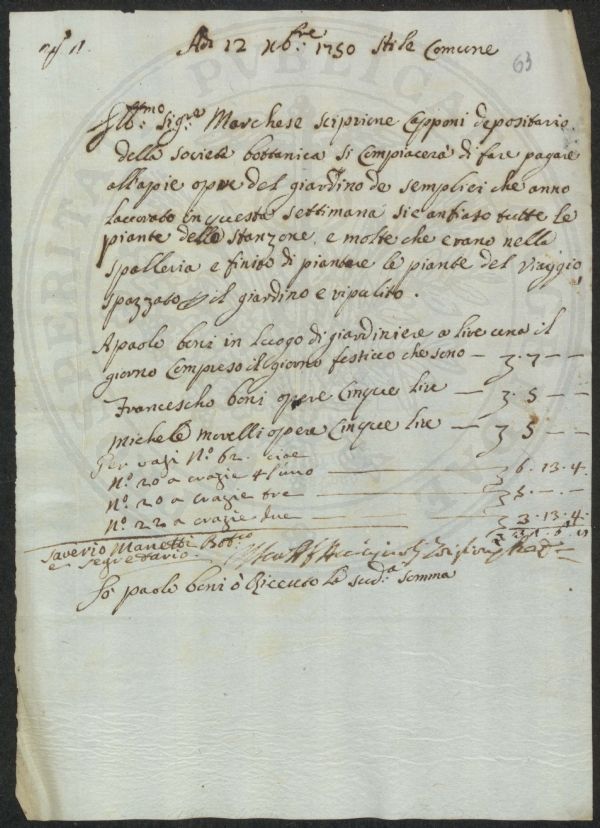 Adi 12 Xbre 1750 stile Comune
63
Illmo: Sigre Marchese sciprione Capponi depositario
della societa bottanica si Compiacerà di fare pagare
all'apie opre del giardino de semplici che anno
laccorato in questa settimana si è anfiato tutte le
piante dello stanzone, e molte che erano nella
spalleria e finito di piantare le piante del viaggio
spazzato il giardino e ripulito.
A paolo boni in luogo di giardiniere a lire una il
giorno Compreso il giorno festiuo che sono — 3. 7 — —
Francescho boni opere Cinque lire — 3. 5 — —
Michele Morelli opere Cinque lire — 3. 5 — —
Per vasi No. 62. cioe
No. 20 a crazie 4 l'uno — 3 6. 13. 4.
No. 20 a crazie tre — 3 5. — . —
No. 22 a crazie due — 3 3. 13. 4.
Saverio Manetti Botco
e segretario
Io paolo boni ò Riceuto la sudа somma
PVBLICA